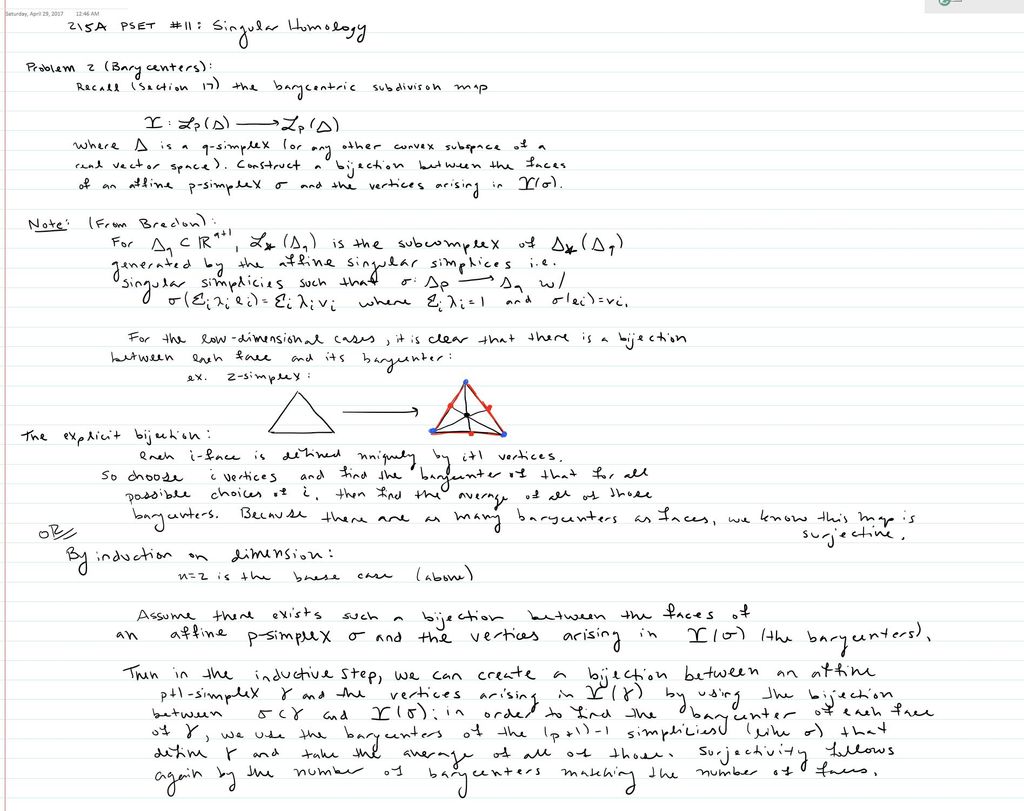 Saturday, April 29, 2017 12:46 AM
215A PSET #11: Singular Homology
Problem 2 (Barycenters):
Recall (Section 17) the barycentric subdivison map
ϒ: ℒp(Δ) ⟶ ℒp(Δ)
where Δ is a q-simplex (or any other convex subspace of a
real vector space). Construct a bijection between the faces
of an affine p-simplex σ and the vertices arising in ϒ(σ).
Note: (From Bredon):
For Δq ⊂ ℝ^q+1, ℒ* (Δq) is the subcomplex of Δ*(Δq)
generated by the affine singular simplices i.e.
singular simplicies such that σ: Δp ⟶ Δq w/
σ(Σi λi ei) = Σi λi vi where Σi λi = 1 and σ(ei)=vi.
For the low-dimensional cases, it is clear that there is a bijection
between each face and its barycenter:
ex. 2-simplex:
The explicit bijection:
each i-face is defined uniquely by i+1 vertices.
So choose i vertices and find the barycenter of that for all
possible choices of i, then find the average of all of those
barycenters. Because there are as many barycenters as faces, we know this map is
surjective.
OR
By induction on dimension:
n=2 is the base case (above)
Assume there exists such a bijection between the faces of
an affine p-simplex σ and the vertices arising in ϒ(σ) (the barycenters).
Then in the inductive step, we can create a bijection between an affine
p+1-simplex γ and the vertices arising in ϒ(γ) by using the bijection
between σ⊂γ and ϒ(σ): in order to find the barycenter of each face
of γ, we use the barycenters of the (p+1)-1 simplicies (like σ) that
define γ and take the average of all of those. Surjectivity follows
again by the number of barycenters matching the number of faces.